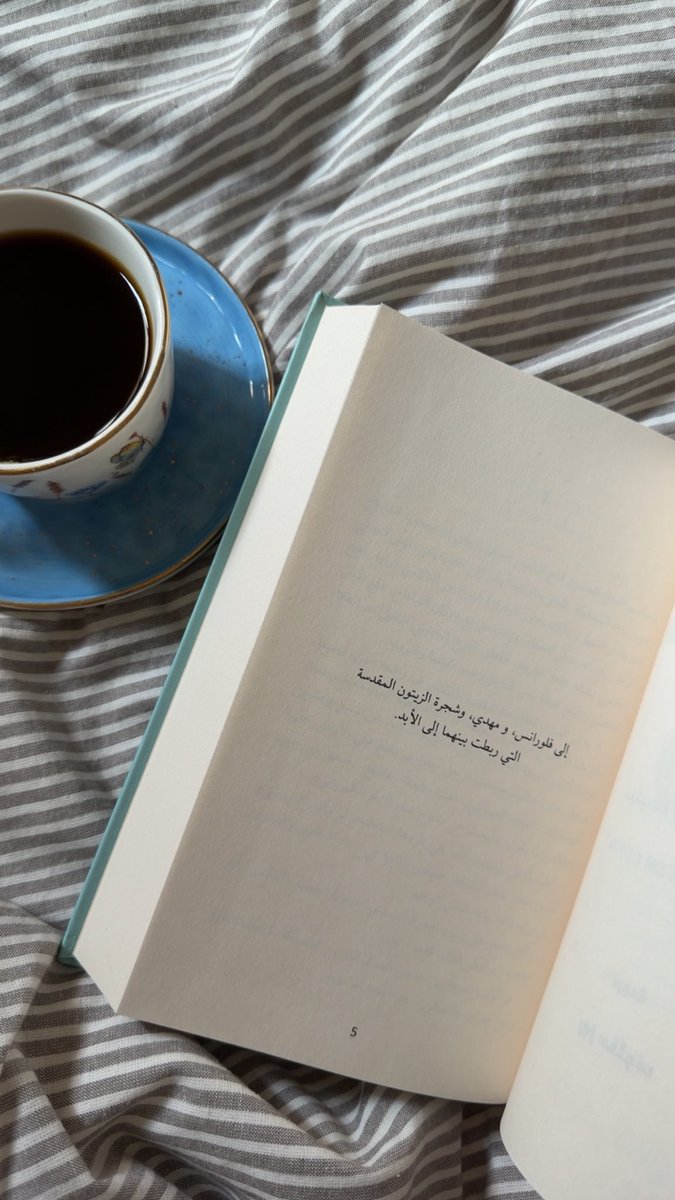 إلى فلورانس، و مهدي، وشجرة الزيتون المقدسة
التي ربطت بينهما إلى الأبد.
5